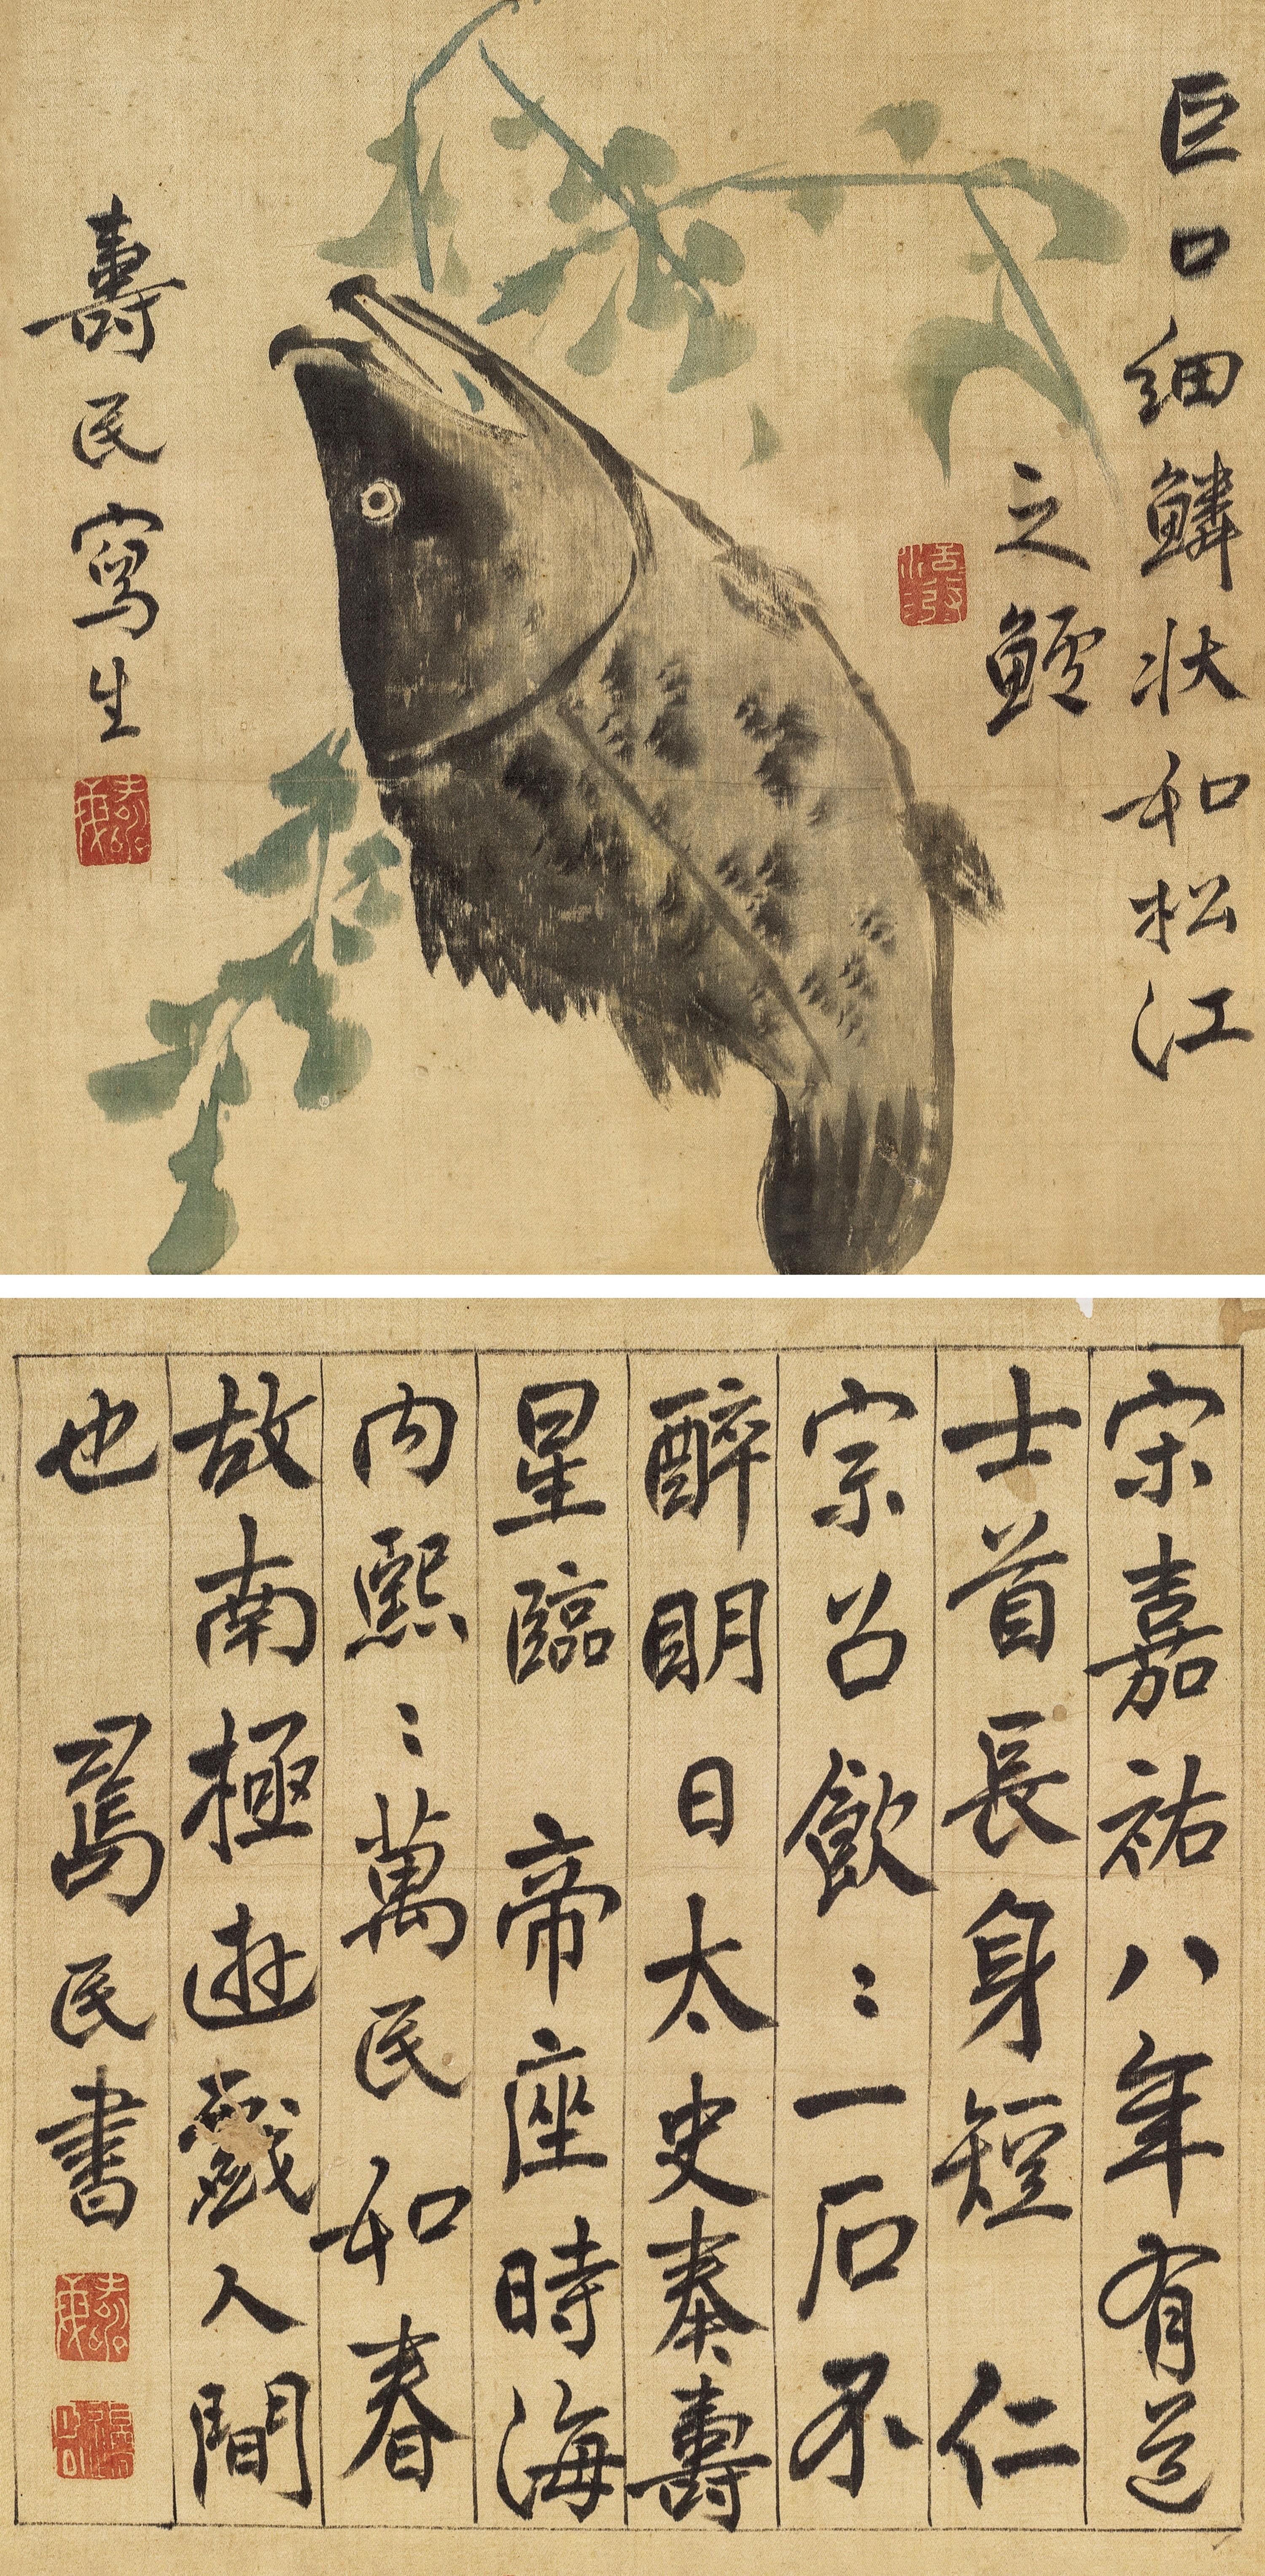 巨口細鱗狀如松江
之鱸
壽民寫生
宋嘉祐八年有道
士首長身短 仁
宗召飲〻一石不
醉眀日太史奏壽
星臨 帝座時海
內熙〻萬民如春
故南極遊戲人間
也 民書